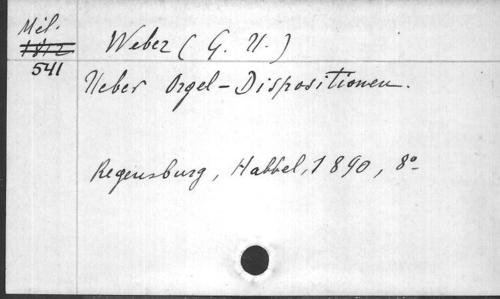 Mél.
1812
541
Weber (G. V.)
Ueber Orgel-Dispositionen.
Regensburg, Habbel, 1890, 8º